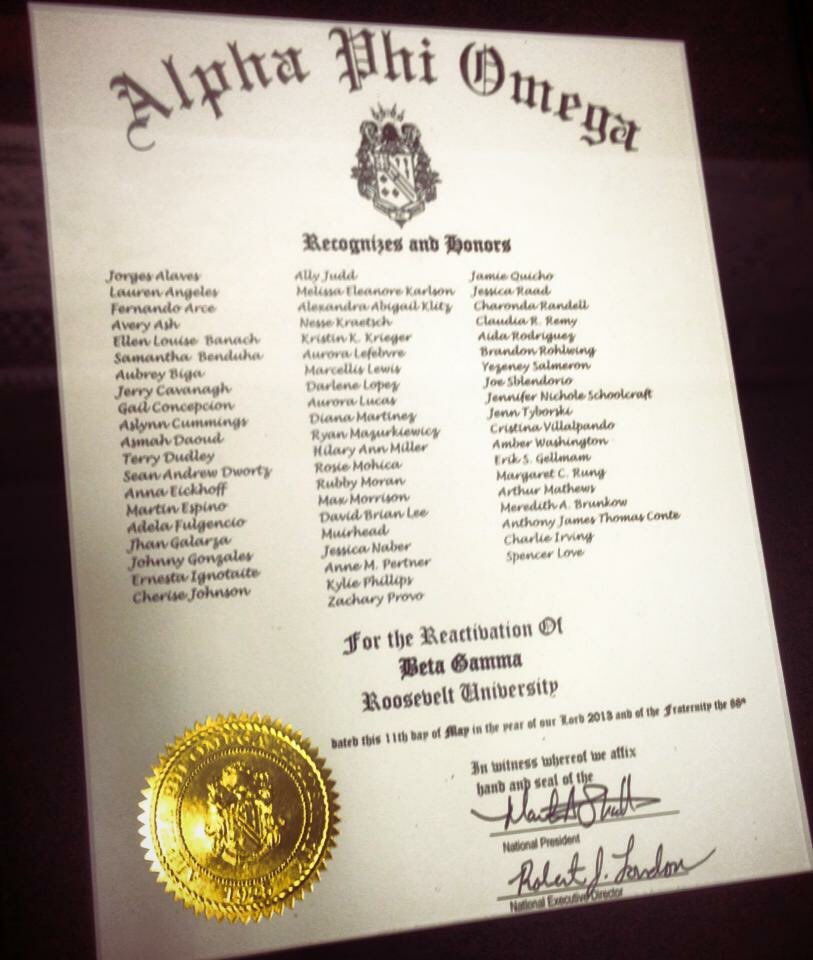 Alpha Phi Omega
Recognizes and Honors
Jorges Alaves
Lauren Angeles
Fernando Arce
Avery Ash
Ellen Louise Banach
Samantha Benduha
Aubrey Biga
Jerry Cavanagh
Gail Concepcion
Aslynn Cummings
Asmah Daoud
Terry Dudley
Sean Andrew Dwortz
Anna Eickhoff
Martin Espino
Adela Fulgencio
Jhan Galarza
Johnny Gonzales
Ernesta Ignotaite
Cherise Johnson
Ally Judd
Melissa Eleanore Karlson
Alexandra Abigail Klitz
Nesse Kraetsch
Kristin K. Krieger
Aurora Lefebvre
Marcellis Lewis
Darlene Lopez
Aurora Lucas
Diana Martinez
Ryan Mazurkiewicz
Hilary Ann Miller
Rosie Mohica
Rubby Moran
Max Morrison
David Brian Lee
Muirhead
Jessica Naber
Anne M. Pertner
Kylie Phillips
Zachary Provo
Jamie Quicho
Jessica Raad
Charonda Randell
Claudia R. Remy
Aida Rodriguez
Brandon Rohlwing
Yezeney Salmeron
Joe Sblendorio
Jennifer Nichole Schoolcraft
Jenn Tyborski
Cristina Villalpando
Amber Washington
Erik S. Gellmam
Margaret C. Rung
Arthur Mathews
Meredith A. Brunkow
Anthony James Thomas Conte
Charlie Irving
Spencer Love
For the Reactivation Of
Beta Gamma
Roosevelt University
dated this 11th day of May in the year of our Lord 2013 and of the Fraternity the 88th
In witness whereof we affix
hand and seal of the
National President
Robert J. London
National Executive Director